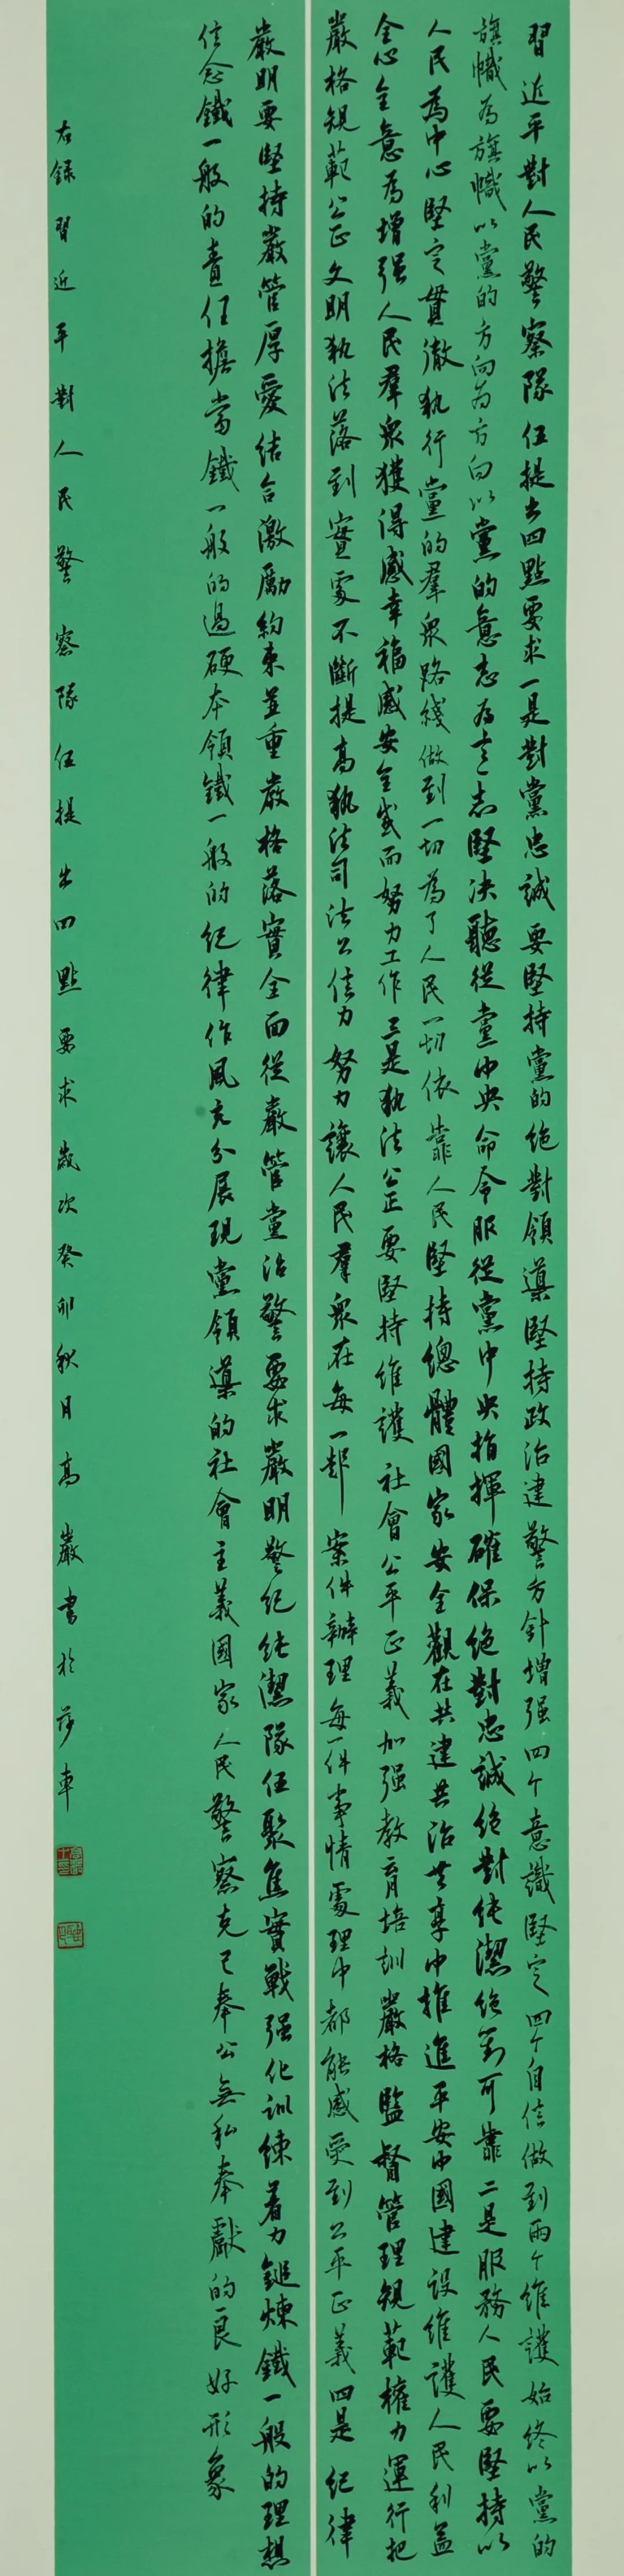 習近平對人民警察隊伍提出四點要求一是對黨忠誠要堅持黨的絕對領導堅持政治建警方針增强四个意識堅定四个自信做到兩个維護始終以黨的
旗幟為旗幟以黨的方向為方向以黨的意志為意志堅決聽從黨中央命令服從黨中央指揮確保絕對忠誠絕對純潔絕對可靠二是服務人民要堅持以
人民為中心堅定貫徹執行黨的羣衆路綫做到一切為了人民一切依靠人民堅持總體國家安全觀在共建共治共享中推進平安中國建設維護人民利益
全心全意為增强人民羣衆獲得感幸福感安全感而努力工作三是執法公正要堅持維護社會公平正義加强教育培訓嚴格監督管理規範權力運行把
嚴格規範公正文明執法落到實處不斷提高執法司法公信力努力讓人民羣衆在每一起案件辦理每一件事情處理中都能感受到公平正義四是紀律
嚴明要堅持嚴管厚愛結合激勵約束並重嚴格落實全面從嚴管黨治警要求嚴明警紀純潔隊伍聚焦實戰强化訓練着力鎚煉鐵一般的理想
信念鐵一般的責任擔當鐵一般的過硬本領鐵一般的紀律作風充分展現黨領導的社會主義國家人民警察克己奉公無私奉獻的良好形象
右錄習近平對人民警察隊伍提出四點要求歲次癸卯秋月高嚴書於莎車